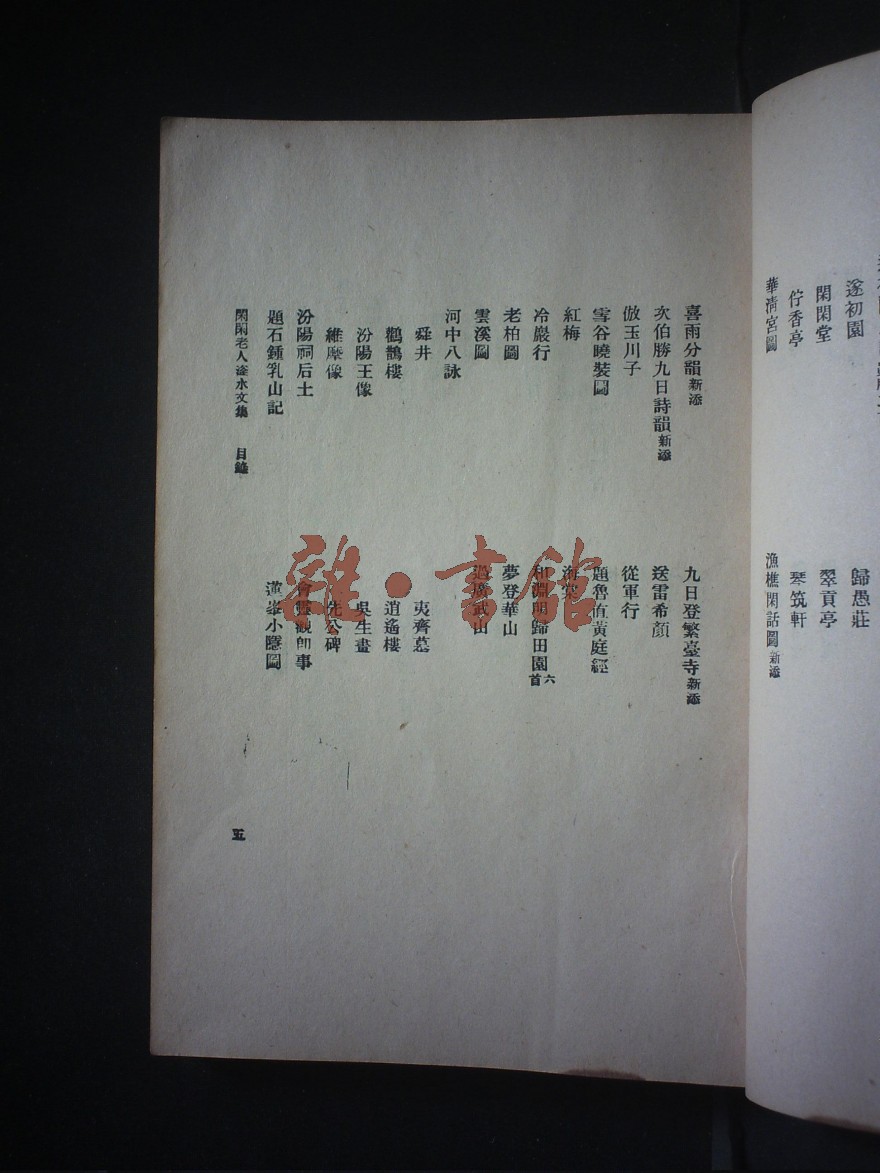 遂初園
歸愚莊
閑閑堂
翠貢亭
佇香亭
琴筑軒
華清宮圖
漁樵閑話圖新添
喜雨分韻新添
九日登繁臺寺新添
次伯勝九日詩韻新添
送雷希顏
倣玉川子
從軍行
雪谷曉裝圖
題魯直黃庭經
紅梅
海棠
冷巖行
和淵明歸田園六首
老柏圖
夢登華山
雲溪圖
過廣武山
河中八詠
舜井
夷齊墓
鸛鵲樓
逍遙樓
汾陽王像
吳生畫
維摩像
先公碑
汾陽祠后土
會靈觀即事
題石鍾乳山記
小隱圖
閑閑老人滏水文集 目錄
五
雜·書館